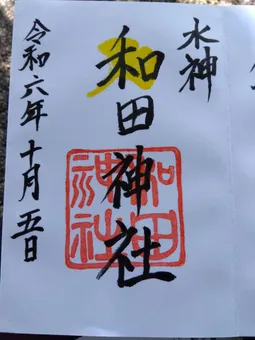 水神
和田神社
和田神社
令和六年十月五日